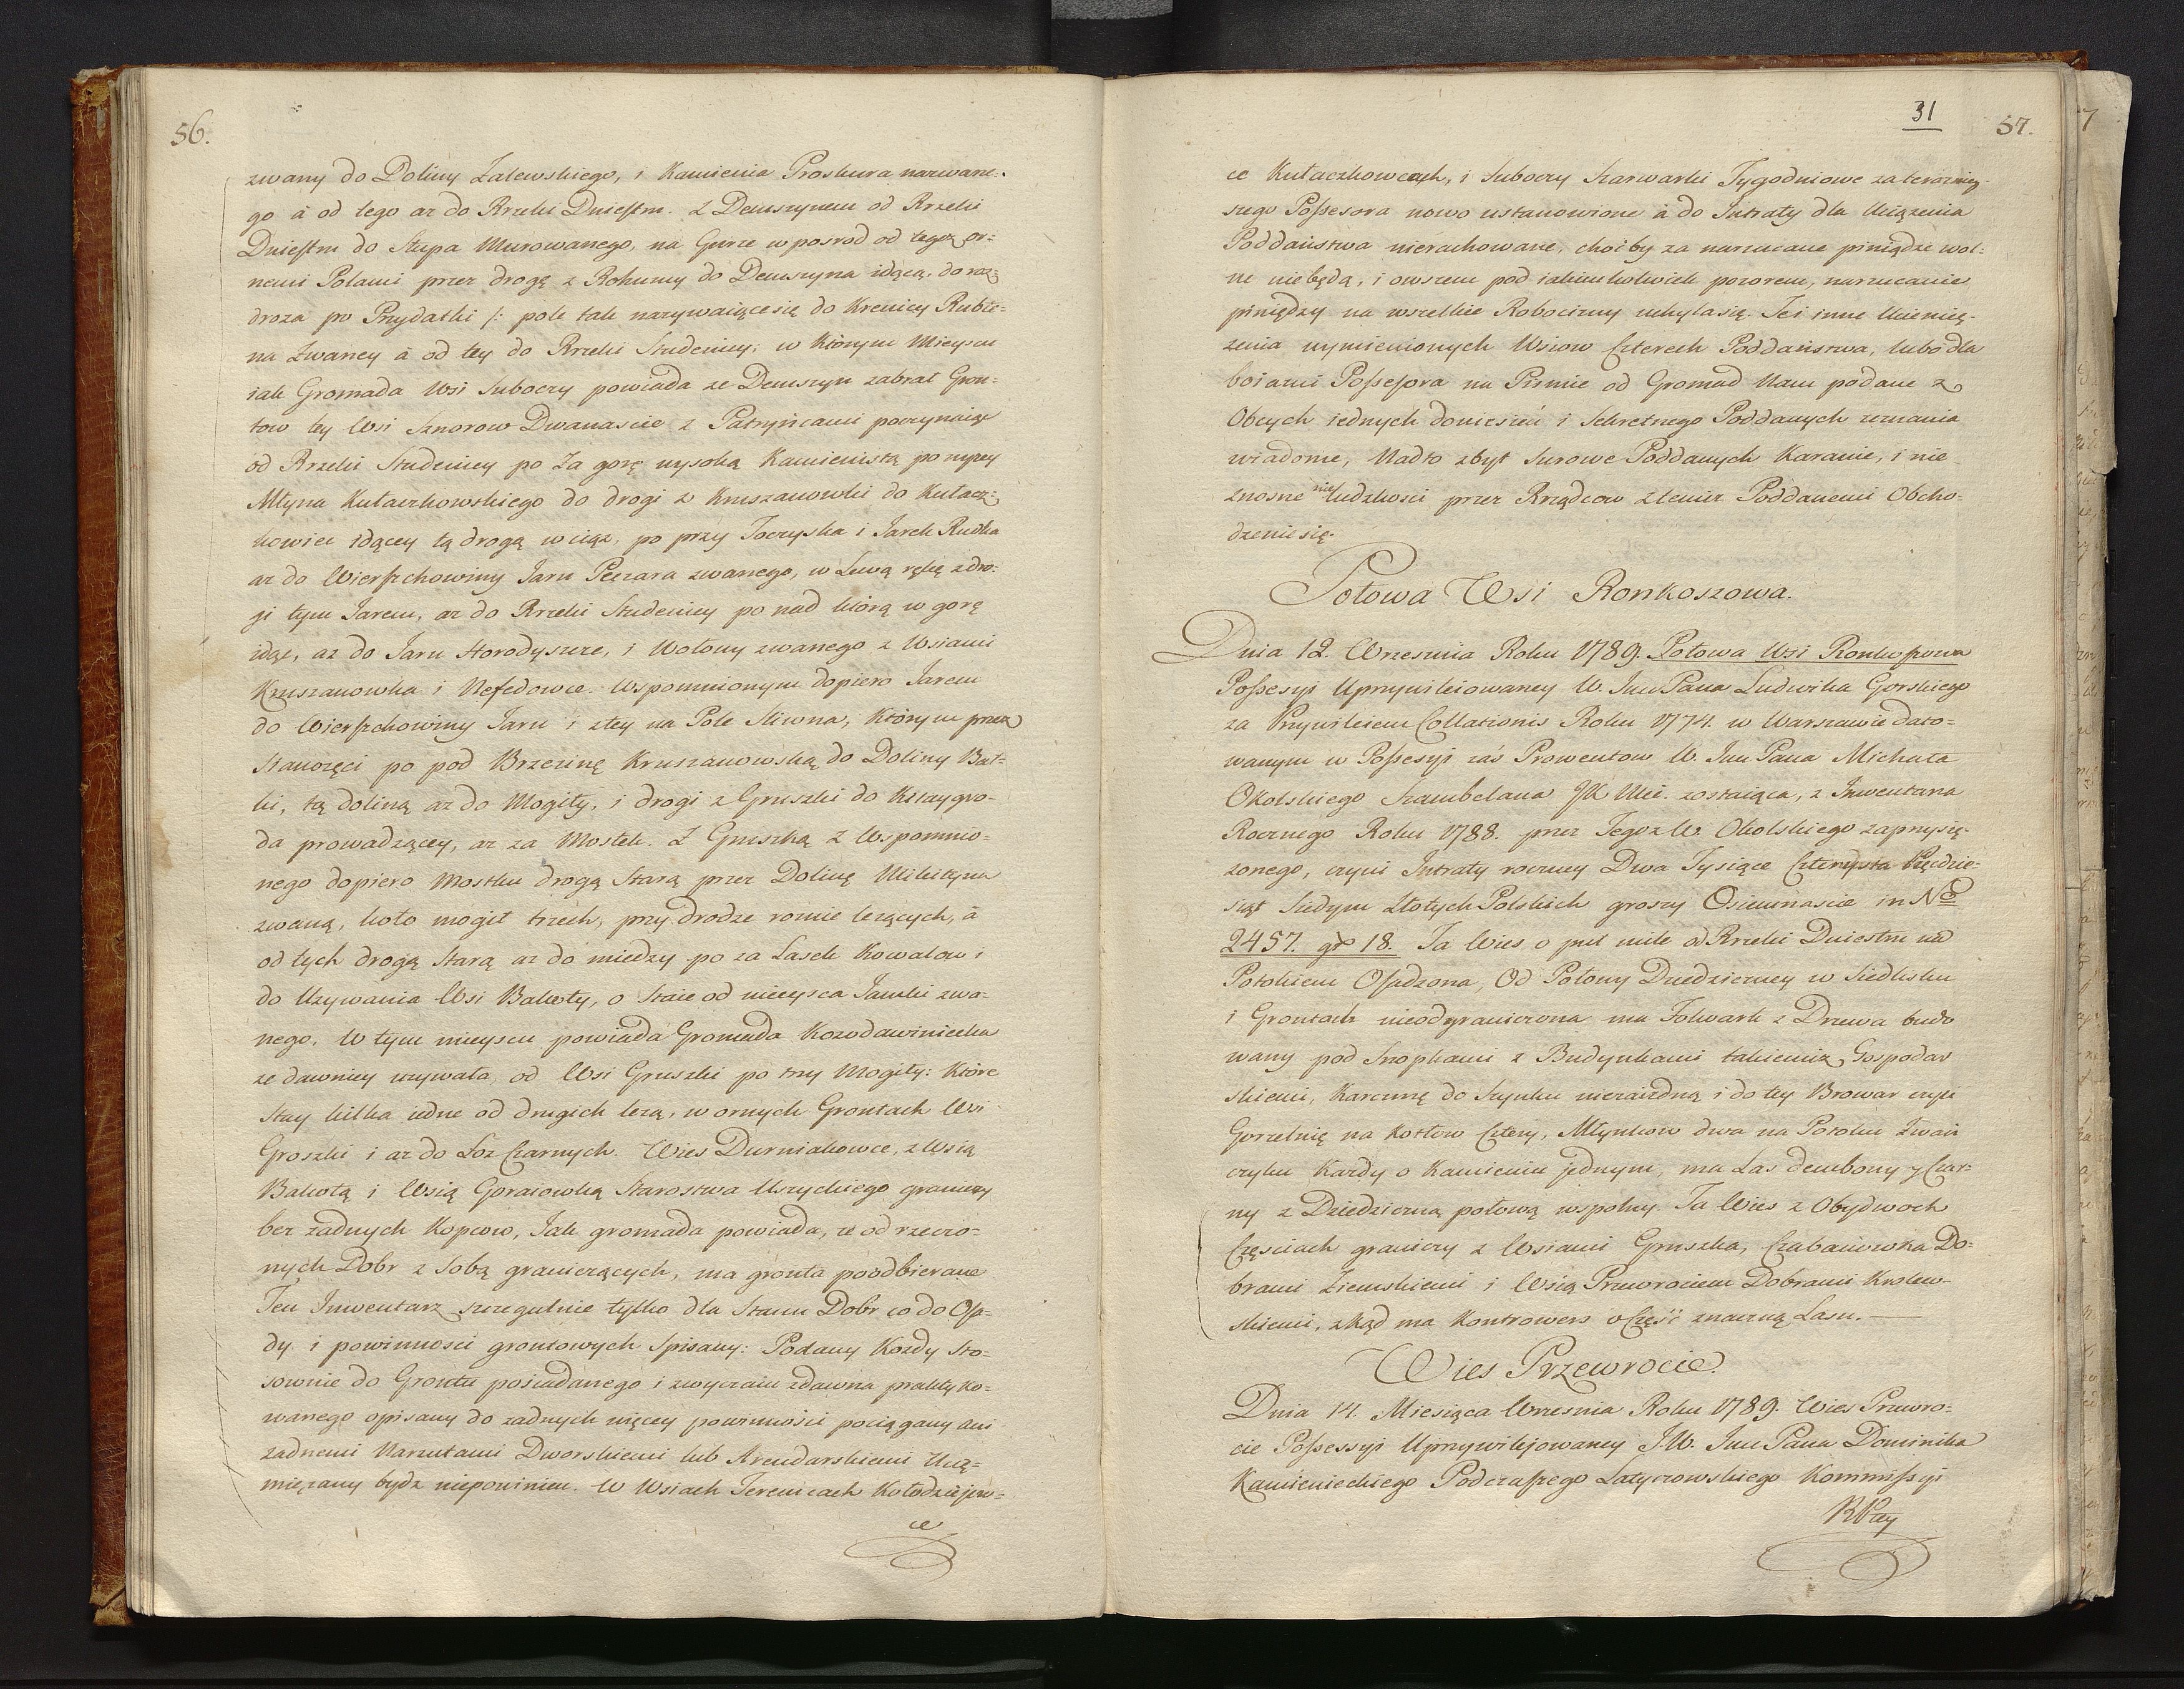 56.
zwany do Doliny Zalewskiego, i Kamienia Proskura nazwane:
go à od tego az do Rzeki Dniestru. Z Demszynem od Rzeki
Dniestru do Słupa Murowanego, na Gurze w posrod od tegoz or:
nemi Polami przez drogę z Rohuzny do Demszyna idącą, do roz:
droza po Przydatki /: pole tak nazywaiące się do Krenicy Ruble:
na Zwaney à od tey do Rzeki Studenicy; w Którym Mieyscu
iak Gromada Wsi Suboczy powiada ze Demszyn zabrał Gron:
tow tey Wsi Sznorow Dwanascie z Patryńcami poczynaiąc
od Rzeki Studenicy po Za gorę wysoką Kamienistą po wyzey
Młyna Kułaczkowskiego do drogi z Kruszanowki do Kułacz:
kowiec idącey tą drogą wciąz, po przy Toczyska i Jarek Rudka
az do Wierszchowiny Jaru Peczara zwanego, w Lewą rękę z dro:
gi tym Jarem, az do Rzeki Studenicy po nad którą w gorę
idąc, az do Jaru Horodyszcze, i Wołowy zwanego z Wsiami
Kruszanowka i Nefedowce. Wspomnionym dopiero Jarem
do Wierszchowiny Jaru i ztey na Pole Sliwna, Którym przez
Stawczęci po pod Brzezinę Kruszanowską do Doliny Bał:
ki, tą doliną az do Mogiły, i drogi z Gruszki do Kitaygro:
da prowadzącey, az za Mostek. Z Gruszką z Wspomnio:
nego dopiero Mostku drogą Starą przez Dolinę Mikityna
zwaną, koło mogił trzech, przy drodze roznie lezących, à
od tych drogą Starą az do miedzy po za Lasek Kowalow i
do Uzywania Wsi Bakoty, o Staie od mieysca Jamki zwa:
nego. W tym mieyscu powiada Gromada Kozodawiniecka
ze dawniey uzywała, od Wsi Gruszki po trzy Mogiły: Które
Stay kilka iedne od drugich lezą, w ornych Grontach Wsi
Groszki i az do Loz Czarnych. Wies Durniakowce, z Wsią
Bakotą i Wsią Goraiowką Starostwa Uszyckiego graniczy
bez zadnych Kopcow, Jak gromada powiada, ze od rzeczo:
nych Dobr z Sobą graniczących, ma gronta poodbierane
Ten Inwentarz szczegulnie tylko dla Stanu Dobr co do Osa:
dy i powinnosci grontowych Spisany: Podany Kozdy Sto:
sownie do Grontu posiadanego i zwyczaiu zdawna praktyko:
wanego opisany do zadnych więcey powinności pociągany ani
zadnemi Narzutami Dworskiemi lub Arendarskiemi Ucię:
mięzany bydz niepowinien. W Wsiach Teremcach Kołodziejow:
ce
31
57.
ce Kułaczkowcach, i Suboczy Szarwarki Tygodniowe za terazniey:
szego Possesora nowo ustanowione à do Intraty dla Uciązenia
Poddaństwa nierachowane, choćby za narzucane piniądze wol:
ne niebędą, i owszem pod iakimkolwiek pozorem, narzucanie
piniędzy na wszelkie Robocizny uchyla się. Te i inne Uciemię:
zenia wymienionych Wsiow Czterech Poddaństwa, lubo dla
boiazni Possesora na Pismie od Gromad Nam podane z
Obcych iednych doniesień i Sekretnego Poddanych zeznania
wiadome, Nadto zbyt Surowe Poddanych Karanie, i nie
znosne nieludzkosci przez Rządcow z temiz Poddanemi Obcho:
dzenie się.
Połowa Wsi Ronkoszowa.
Dnia 12. Wrzesnia Roku 1789. Połowa Wsi Ronkoszowa
Possesyi Uprzywileiowaney W. Jmc Pana Ludwika Gorskiego
za Przywileiem Collationis Roku 1774. w Warszawie dato:
wanym w Possesyi zaś Prowentow W. Jmc Pana Michała
Okolskiego Szambelana JK Mci. zostaiąca, z Inwentarza
Rocznego Roku 1788. przez Tegoz W. Okolskiego zaprzysię:
zonego, czyni Intraty roczney Dwa Tysiące Czterysta Pięcdzie:
siąt Siedym Złotych Polskich groszy Osiemnascie in No
2457. gr 18. Ta Wies o puł mile od Rzeki Dniestru nad
Potokiem Osadzona, Od Połowy Dziedziczney w Siedlisku
i Grontach nieodgraniczona ma Folwark z Drzewa budo
wany pod Snopkami z Budynkami takiemiz Gospodar
skiemi, Karczmę do Szynku niezaiezdną i do tey Browar czyli
Gorzelnię na Kotłow Cztery, Młynkow dwa na Potoku Zwań
czyku Kazdy o Kamieniu jednym, ma Las dembowy y Czar:
ny z Dziedziczną połową wspolny. Ta Wies z Obydwoch
Częsciach graniczy z Wsiami Gruszka, Czabanowka Do:
brami Ziemskiemi i Wsią Przewrociem Dobrami Krolew:
skiemi, zkąd ma Kontrowers o Część znaczną Lasu.
Wies Przewrocie.
Dnia 14. Miesiąca Wrzesnia Roku 1789. Wies Przewro:
cie Possessyi Uprzywilejowaney J.W. Jmc Pana Dominika
Kamienieckiego Podczaszego Latyczowskiego Kommissyi
RPtey